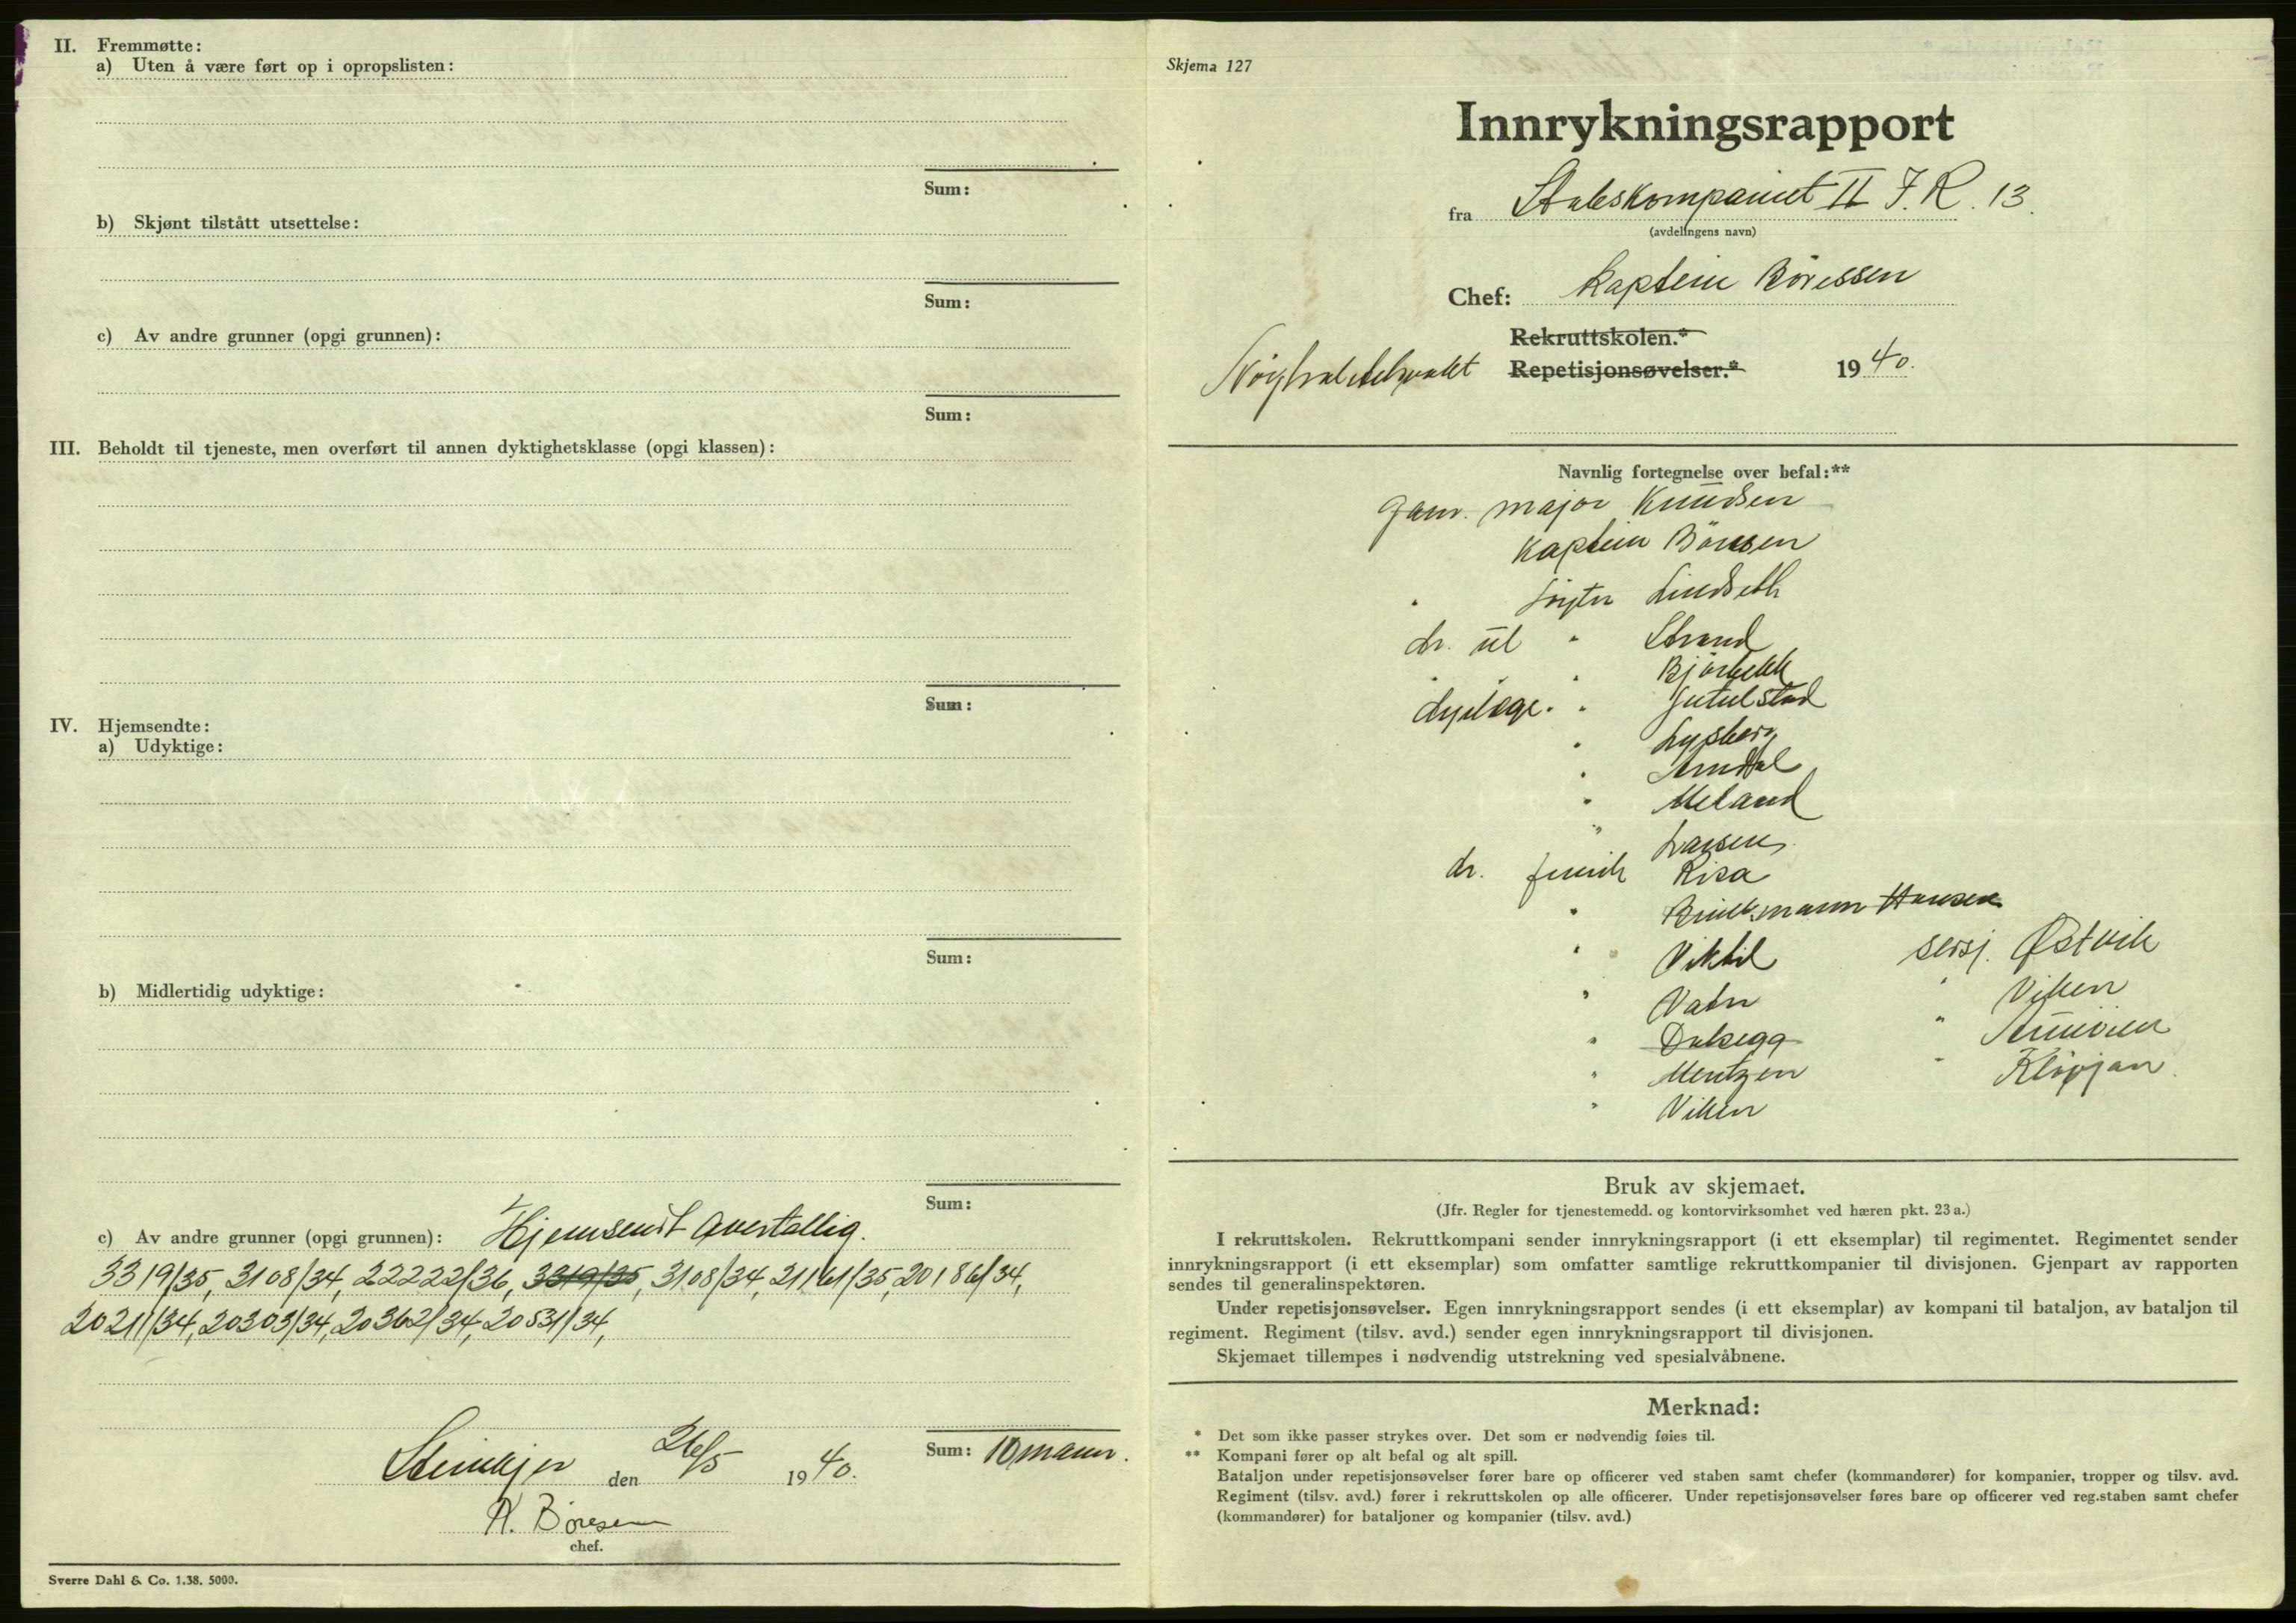 II. Fremmøtte:
a) Uten å være ført op i opropslisten:
Sum:
b) Skjønt tilstått utsettelse:
Sum:
c) Av andre grunner (opgi grunnen):
Sum:
III. Beholdt til tjeneste, men overført til annen dyktighetsklasse (opgi klassen):
Sum:
IV. Hjemsendte:
a) Udyktige:
Sum:
b) Midlertidig udyktige:
Sum:
c) Av andre grunner (opgi grunnen): Hjemsendt overtallig.
3319/35, 3108/34, 22222/36, 3319/35, 3108/34, 21161/35, 20186/34,
20211/34, 20303/34, 20362/34, 20531/34,
Sum: 10 mann.
Steinkjer den 26/5 1940.
A. Børesen
chef.
Sverre Dahl & Co. 1.38. 5000.
Skjema 127
Innrykningsrapport
fra Stabskompaniet II I.R. 13.
(avdelingens navn)
Chef: Kaptein Böressen
Rekruttskolen.*
Nöytralitetsvakt Repetisjonsøvelser.* 1940.
Navnlig fortegnelse over befal:**
major Knudsen
Kaptein Böresen
Löytn Lindseth
dr. " Strand
" Björbekk
" Jutulstad
" Lysberg
"
" Meland
" Larsen
dr. fenrik Risa
" Brinkmann Hansen
" Viktil sersj. Østvik
" Vatn " Viken
" Dalsegg "
" Mentzen "
" Viken
Bruk av skjemaet.
(Jfr. Regler for tjenestemedd. og kontorvirksomhet ved hæren pkt. 23 a.)
I rekruttskolen. Rekruttkompani sender innrykningsrapport (i ett eksemplar) til regimentet. Regimentet sender
innrykningsrapport (i ett eksemplar) som omfatter samtlige rekruttkompanier til divisjonen. Gjenpart av rapporten
sendes til generalinspektøren.
Under repetisjonsøvelser. Egen innrykningsrapport sendes (i ett eksemplar) av kompani til bataljon, av bataljon til
regiment. Regiment (tilsv. avd.) sender egen innrykningsrapport til divisjonen.
Skjemaet tillempes i nødvendig utstrekning ved spesialvåbnene.
Merknad:
* Det som ikke passer strykes over. Det som er nødvendig føies til.
** Kompani fører op alt befal og alt spill.
Bataljon under repetisjonsøvelser fører bare op officerer ved staben samt chefer (kommandører) for kompanier, tropper og tilsv. avd.
Regiment (tilsv. avd.) fører i rekruttskolen op alle officerer. Under repetisjonsøvelser føres bare op officerer ved reg.staben samt chefer
(kommandører) for bataljoner og kompanier (tilsv. avd.)